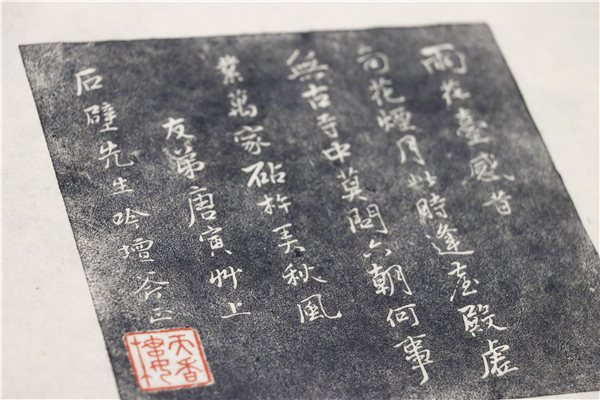 雨花臺感昔
花煙月此時逢臺殿虛
無古寺中莫問六朝何事
業萬家砧杵美秋風
友弟唐寅艸上
石壁先生吟壇斧正
天香樓